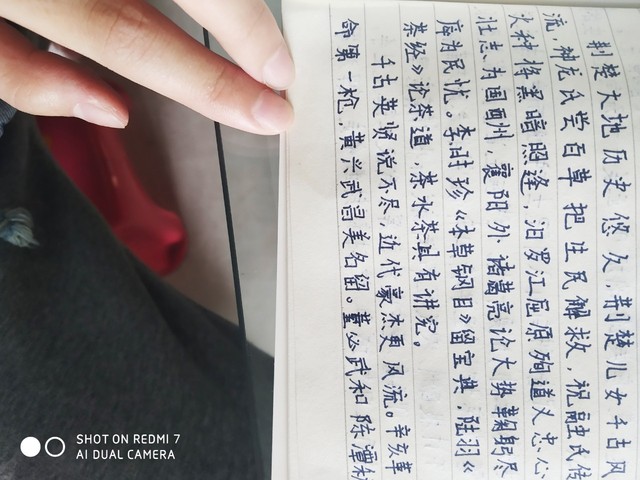 荆楚大地历史悠久,荆楚儿女千古风
流,神龙氏尝百草把生民解救,祝融氏传
火种将黑暗照逢,汨罗江屈原殉道义忠心
壮志为国,襄阳外诸葛亮论大势鞠躬尽
为民忧。李时珍《本草钢目》留宝典,陆羽《
茶经》论茶道,茶水茶具有讲究。
千古英贤说不尽,近代豪杰更风流。辛亥革
命第一枪,黄兴武昌美名留。董必武和陈潭秋
SHOT ON REDMI 7
AI DUAL CAMERA